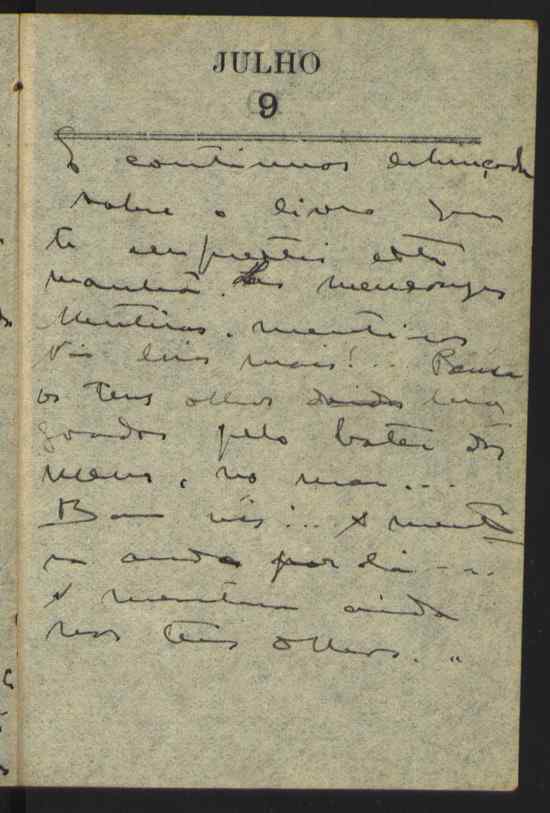 JULHO
9
E continuas debruçada
sobre o livro que
te emprestei esta
manhã. As mensagens
Mentiras, mentiras
Não leias mais!... Pousa
os teus olhos doridos, ma
goados pelo bater dos
meus, no mar...
Bem vês!... A menti
ra anda por lá...
A mentira anda
nos teus olhos...